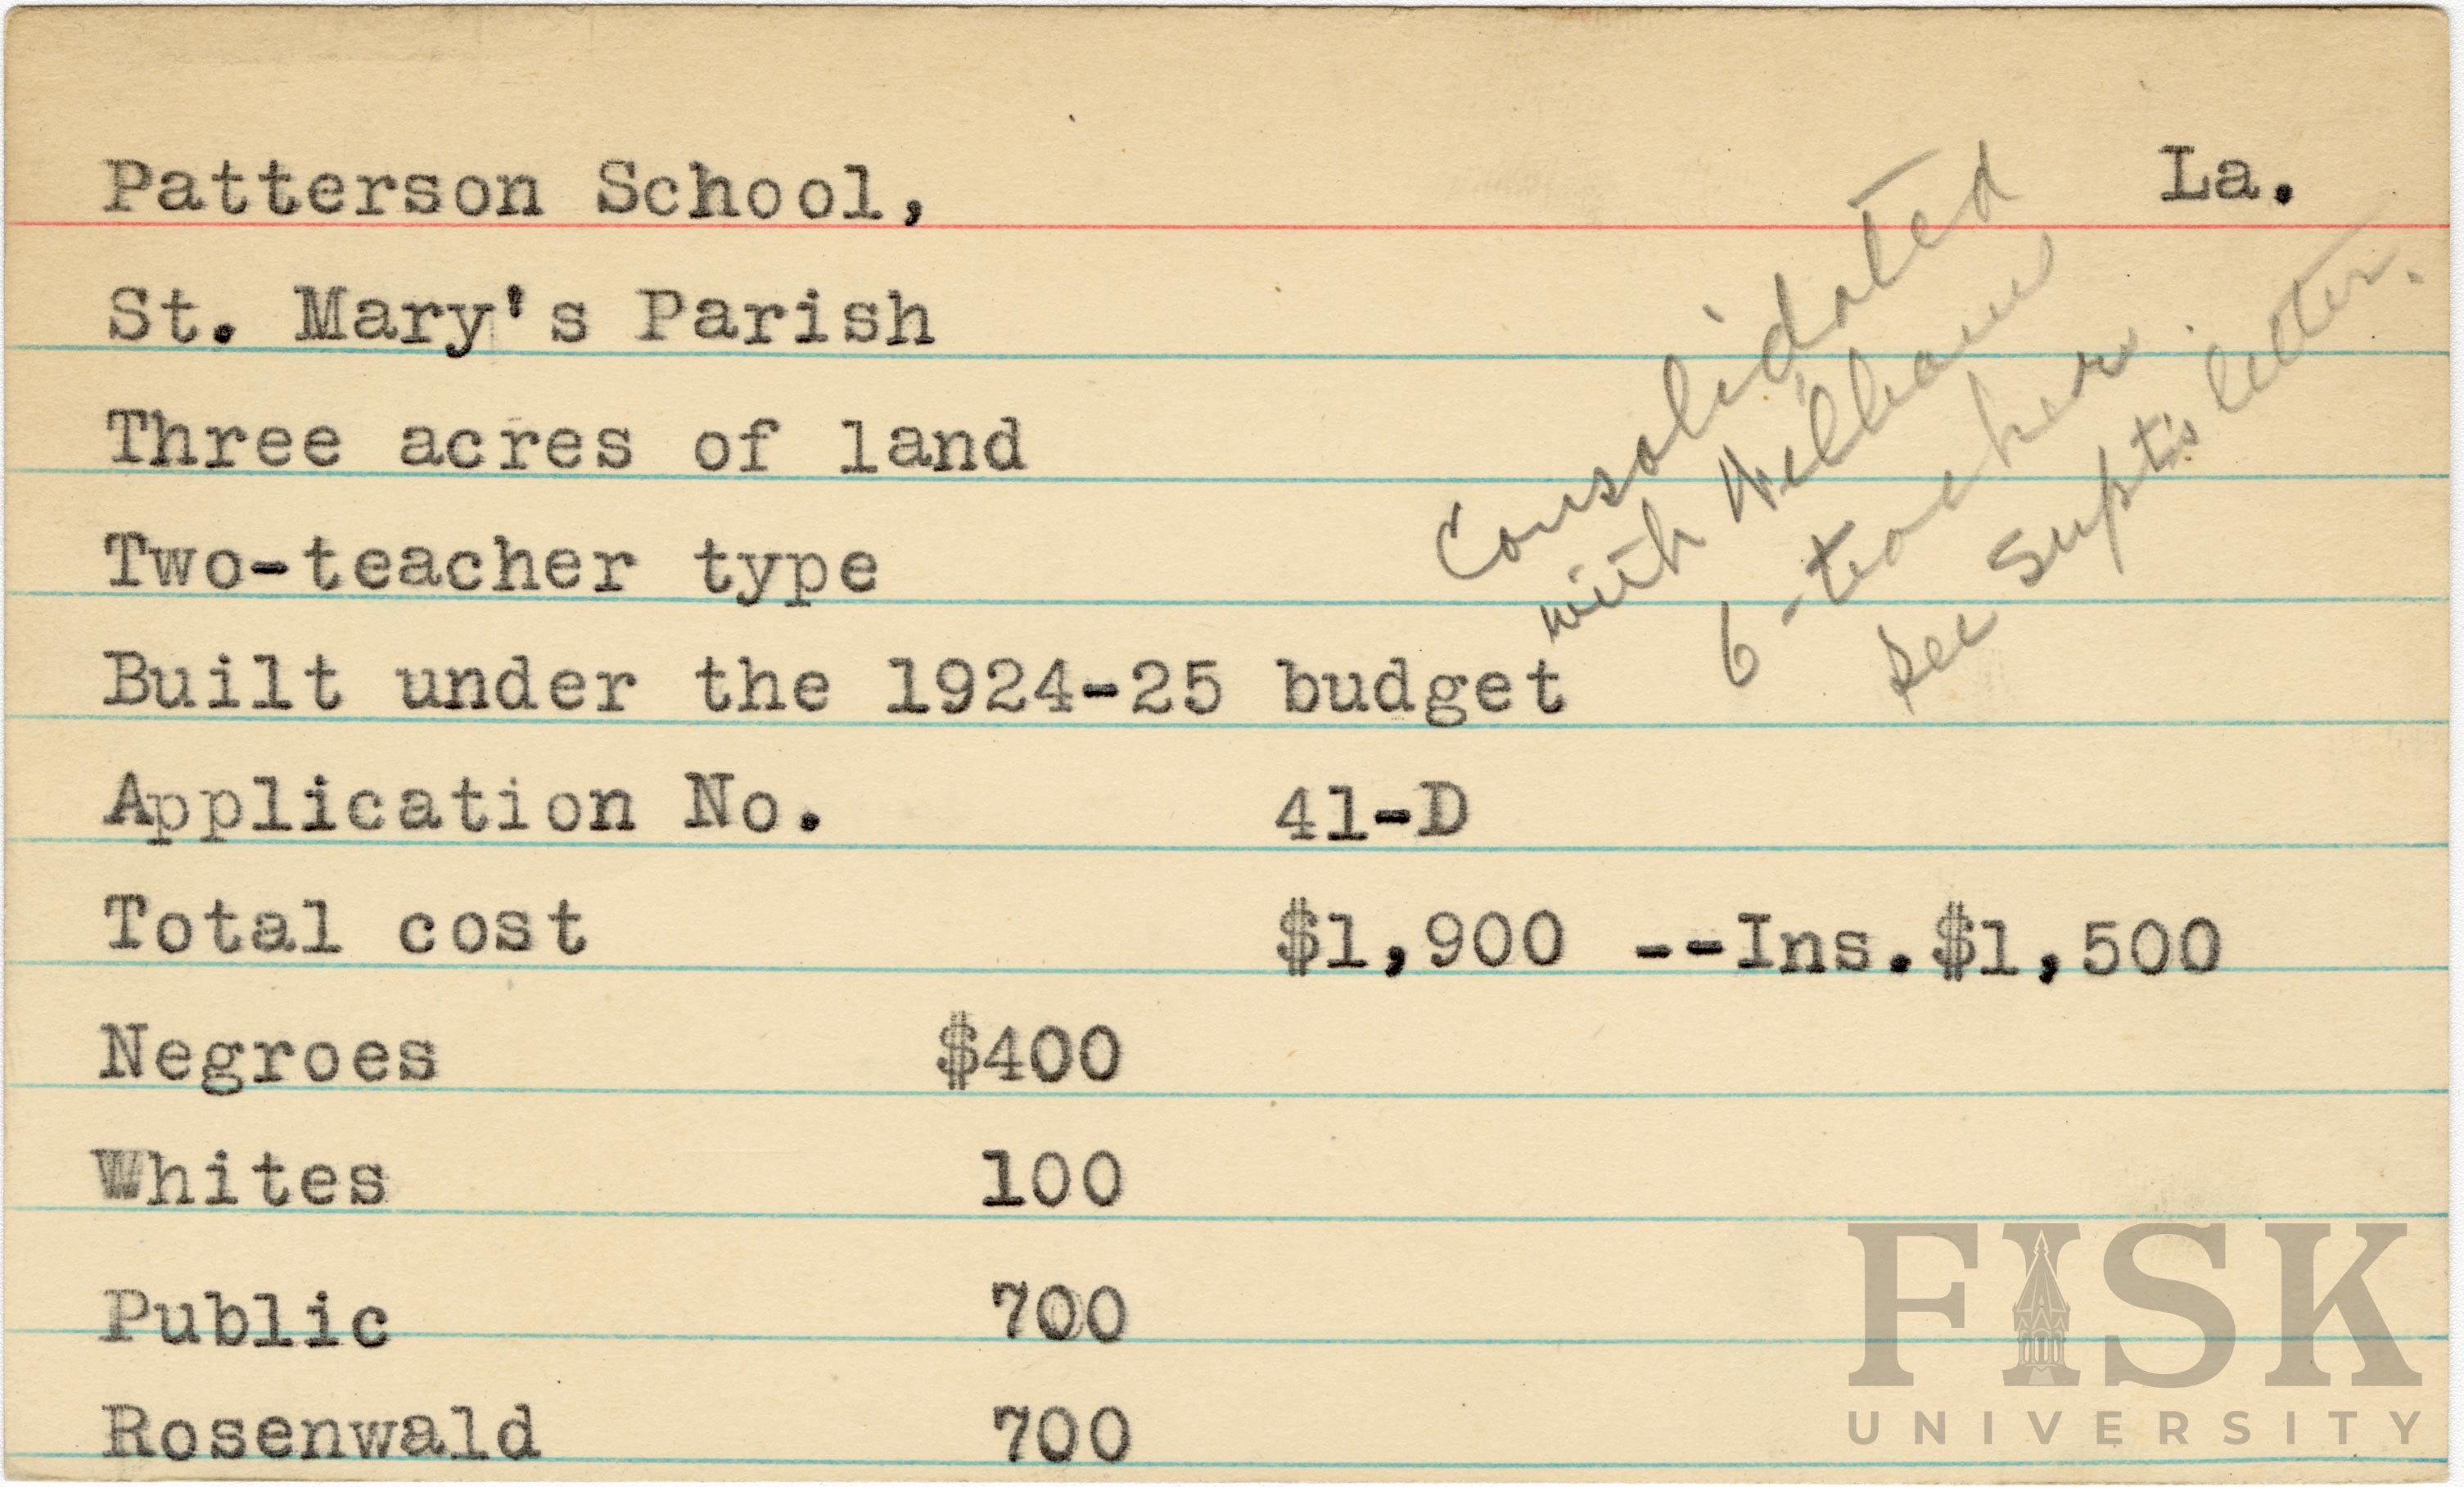 Patterson School, La.
St. Mary's Parish
Three acres of land
Two-teacher type
Built under the 1924-25 budget
Application No. 41-D
Total cost $1,900 --Ins.$1,500
Negroes $400
Whites 100
Public 700
Rosenwald 700
Consolidated
with
6-teacher
see Supt's letter.
FISK
UNIVERSITY